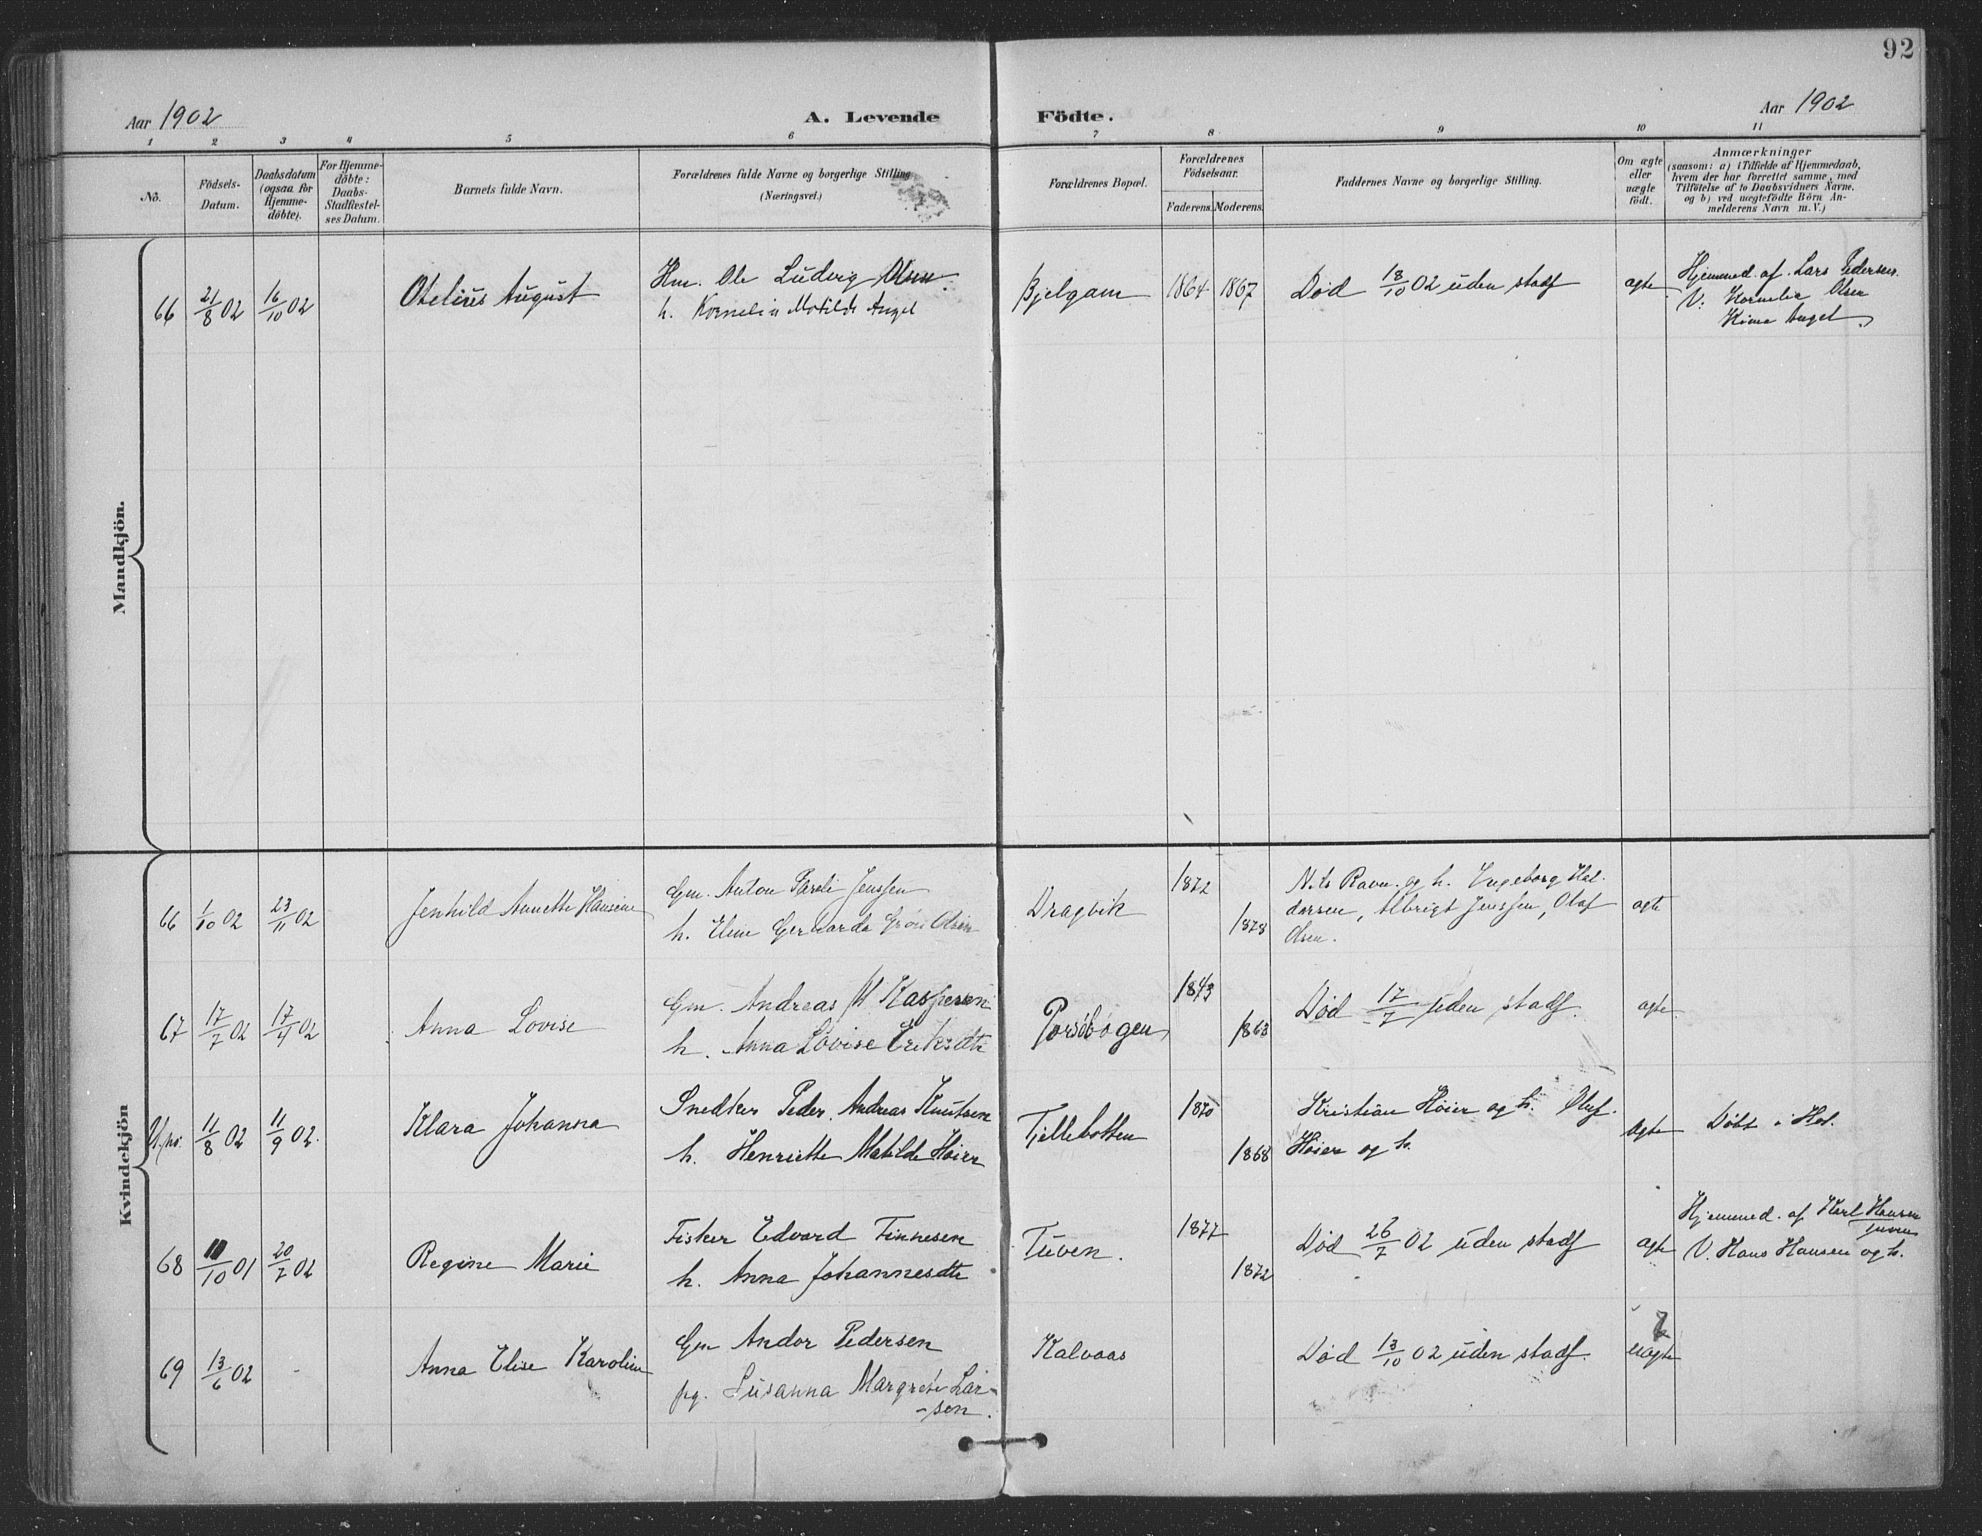 92
Aar 1902
A. Levende Födte.
Aar 1902
1 2 3 4 5 6 7 8 9 10 11
No.
Födsels-
Datum.
Daabsdatum
(ogsaa for
Hjemme-
döbte).
For Hjemme-
döbte:
Daabs-
Stadfæstel-
ses Datum.
Barnets fulde Navn.
Forældrenes fulde Navne og borgerlige Stilling
(Næringsvei.)
Forældrenes Bopæl.
Forældrenes
Födselsaar.
Faderens. Moderens.
Faddernes Navne og borgerlige Stilling.
Om ægte
eller
uægte
födt.
Anmærkninger
(saasom: a) i Tilfælde af Hjemmedaab,
hvem der har forrettet samme, med
Tilföielse af to Daabsvidners Navne,
og b) ved uægtefödte Börn An-
melderens Navn m. V.)
Mandkjön.
66 21/8 02 16/10 02 Otelius August
Hm. Ole Ludvig Olsen.
h. Kornelia Matilde Angel
Bjelgam 1864 1867 Død 18/10 02 uden stadf ægte
Hjemmed. af. Lars Pedersen.
V: Kornelia Olsen
Angel
Kvindekjön
66 1/10 02 23/11 02 Jenhild Annette Hansine
Gm. Anton Jenssen
h. Gerharda Olsen
Dragvik 1872 1878
Nils Ravn. og h. Ingeborg Hal-
dorsen, Albrigt Jenssen, Olaf
Olsen.
ægte
67 17/7 02 17/4 02 Anna Lovise
Gm. Andreas M Kaspersen
h. Anna Lovise Eriksdtr
Porsbøgen 1843 1863 Død 17/7 uden stadf. ægte
11/8 02 11/9 02. Klara Johanna
Snedker Peder. Andreas Knutsen
h. Henriette Matilde Høier
Tjellebotten 1870 1868
Kristian Høier og h. Oluf.
Høier og h.
ægte Døbt i Hol.
68 11/10 01 20/7 02 Regine Marie
Fisker Edvard Finnesen
h. Anna Johannesdtr
Tuven. 1877 1872 Død 26/7 02 uden stadf ægte
Hjemmed. af Karl Hansen
Tuven
V. Hans Hansen og h.
69 13/6 02 - Anna Elise Karoline
Gm Andor Pedersen
pg. Susanna Margrete Lar-
-sen.
Kalvaas Død 13/10 02 uden stadf. uægte
2